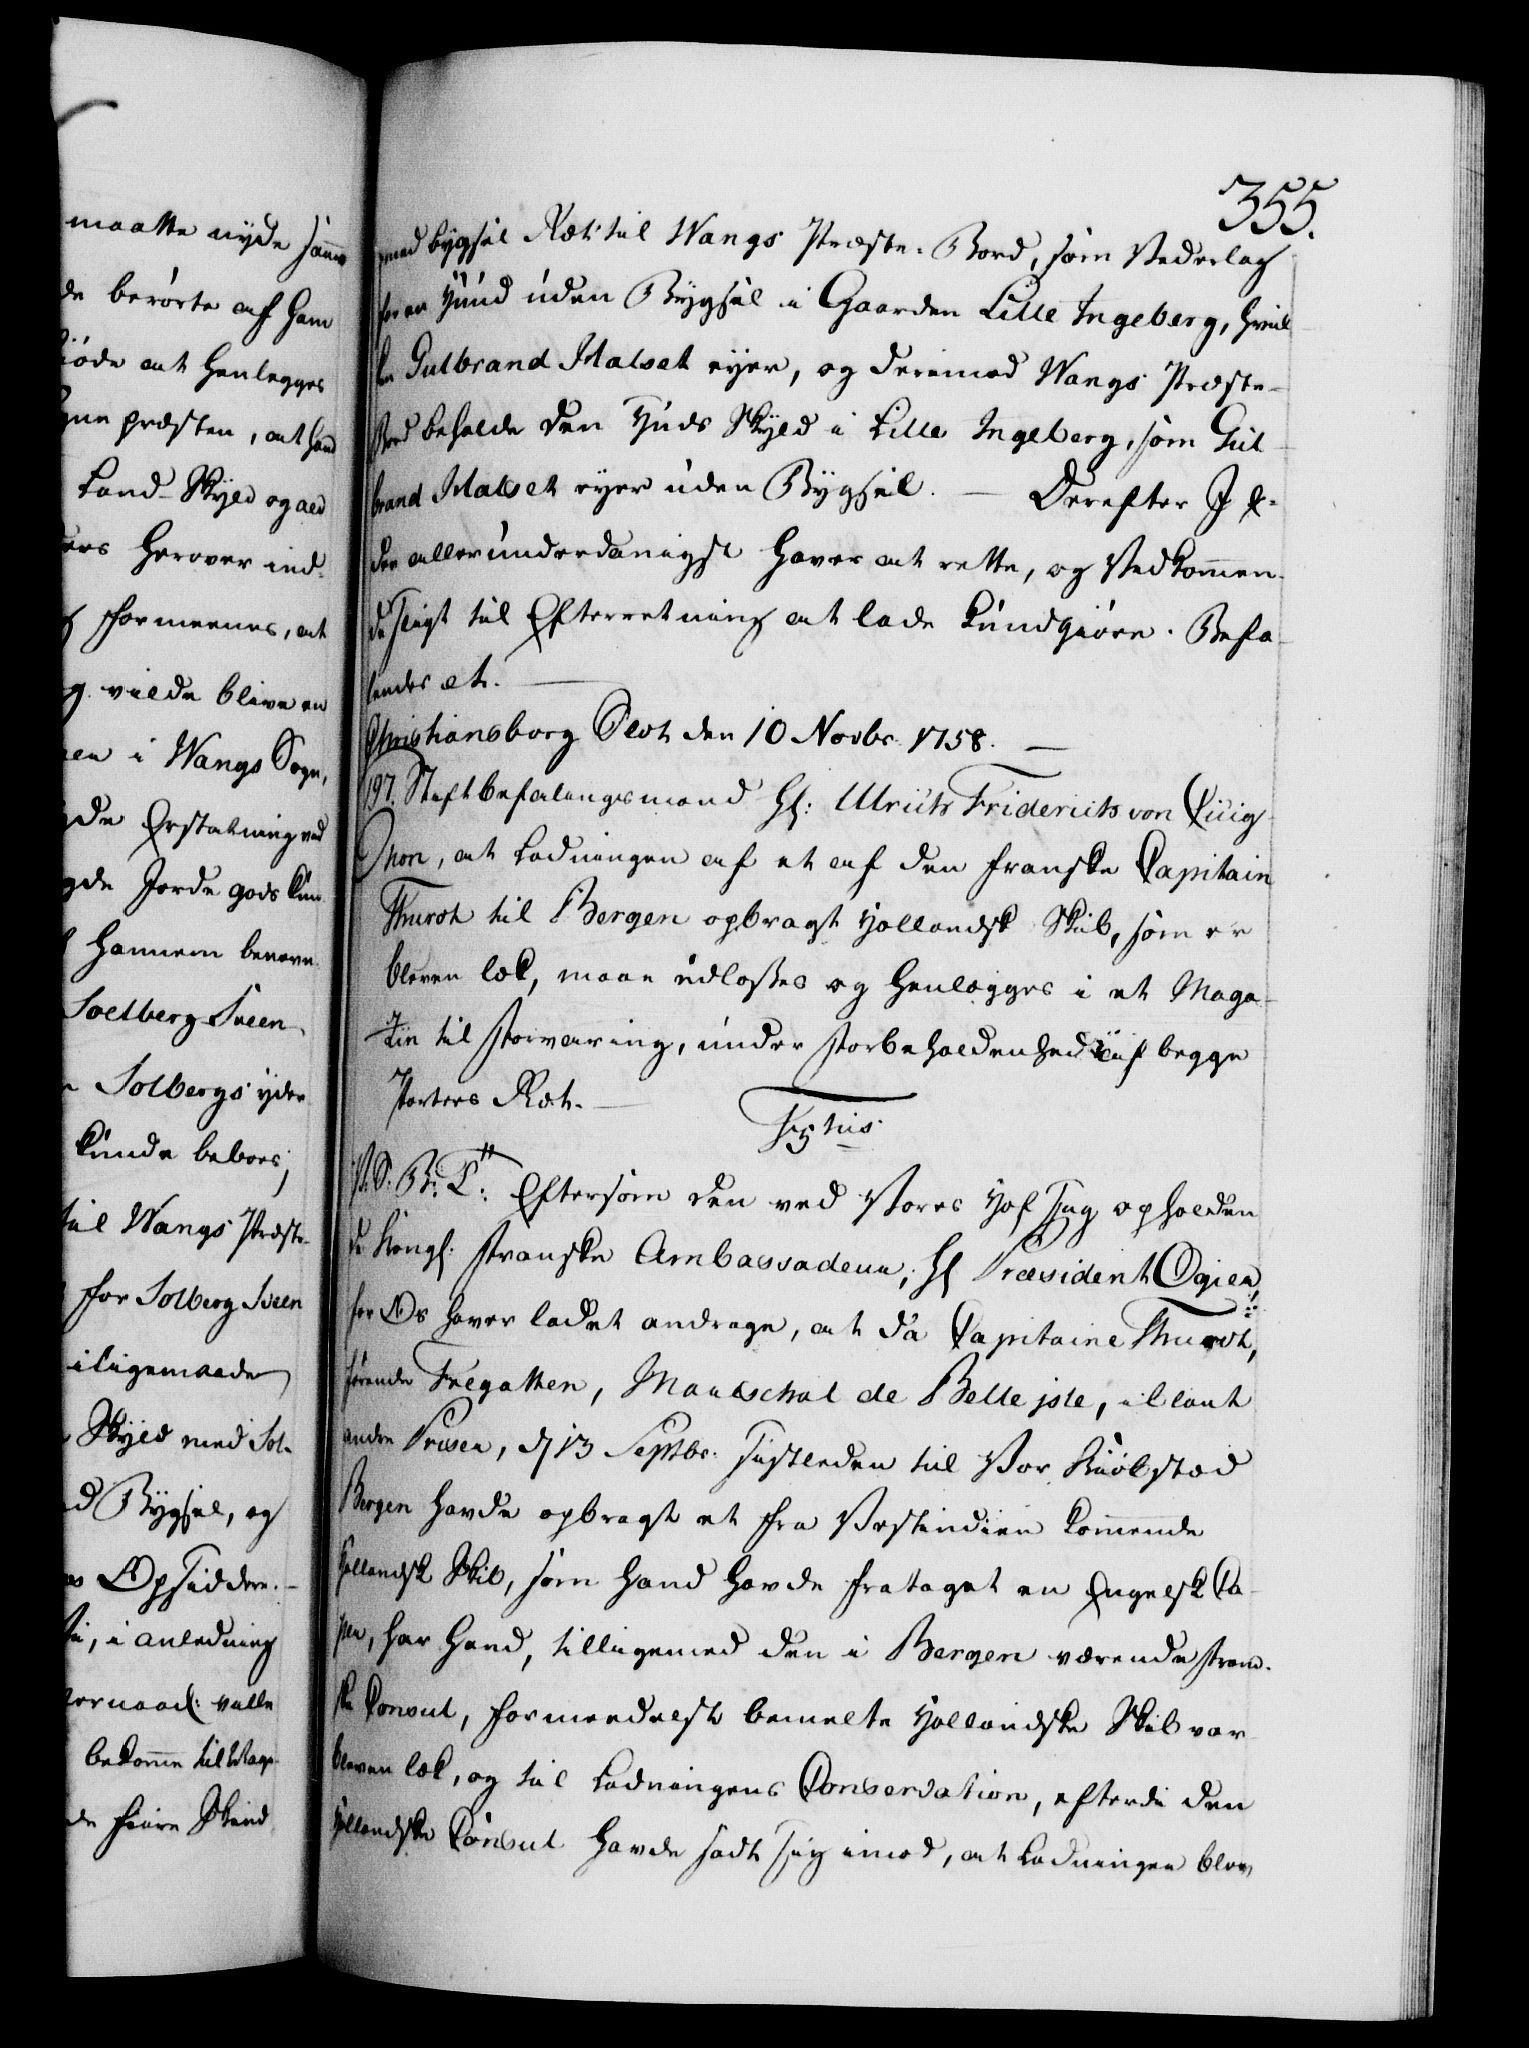 maatte nyde samme
de berørte af ham
kiøde at henlegges
gne præsten, at hand
Land-Skyld og aed
ders herover ind-
formeenes, at
g vilde blive en
en i Wangs Sogn,
gde Erstatning ved
gde Jorde gods kun
hannem benevn
Solberg Sveen
Solbergs yder
kunde beboes,
til Wangs Præste-
for Solberg Sveen
iligemaade
Skyld med Sol-
d Bygsel, og
Opsiddere.
i, i anledning
bekomme tillæg
de fiire Skind
355.
med bygsel Ret til Wangs Præste-Bord, som Vederlag
for en Hud uden Bygsel i Gaarden Lille Ingeberg, hvil
ken Gulbrand Malset eyer, og derimod Wangs Præste-
Bord beholde den Huds Skyld i Lille Ingeberg, som Gul-
brand Malset eyer uden Bygsel. — Derefter I E-
der allerunderdanigst haver at rette, og Vedkommen-
de sligt til Efterretning at lade kundgiøre. Befa-
lendes etc. —
Christiansborg Slot den 10 Novbr. 1758. —
197. Stiftbefalingsmand Hl: Ulrich Friderich von Cicig-
non, at Ladningen af et af den franske Capitain
Thurot til Bergen opbragt Hollandsk Skib, som er
bleven læk, maae udlosses og henlægges i et Maga-
zin til forvaring, under forbeholdenhed af begge
Parters Ret. —
Hl tus.
V: S: B: T: Eftersom den ved Vores Hof sig opholden
de Kongl: franske Ambassadeur, Hl Præsident Ogier,
for Os haver ladet andrage, at da Capitaine Thurot,
førende Fregatten, Marèschal de Belle isle, iblant
andre Priser, d 13 Septbr. sistleden til Vor Kiøbstæd
Bergen havde opbragt et fra Vestindien kommende
Hollandsk Skib, som hand havde frataget en Engelsk Ca-
per, har hand, tilligemed den i Bergen værende fran-
ske Consul, formedelst bemelte Hollandske Skib var
bleven læk, og til Ladningens Conservation, efterdi den
Hollandske Consul havde sadt sig imod, at Ladningen blev